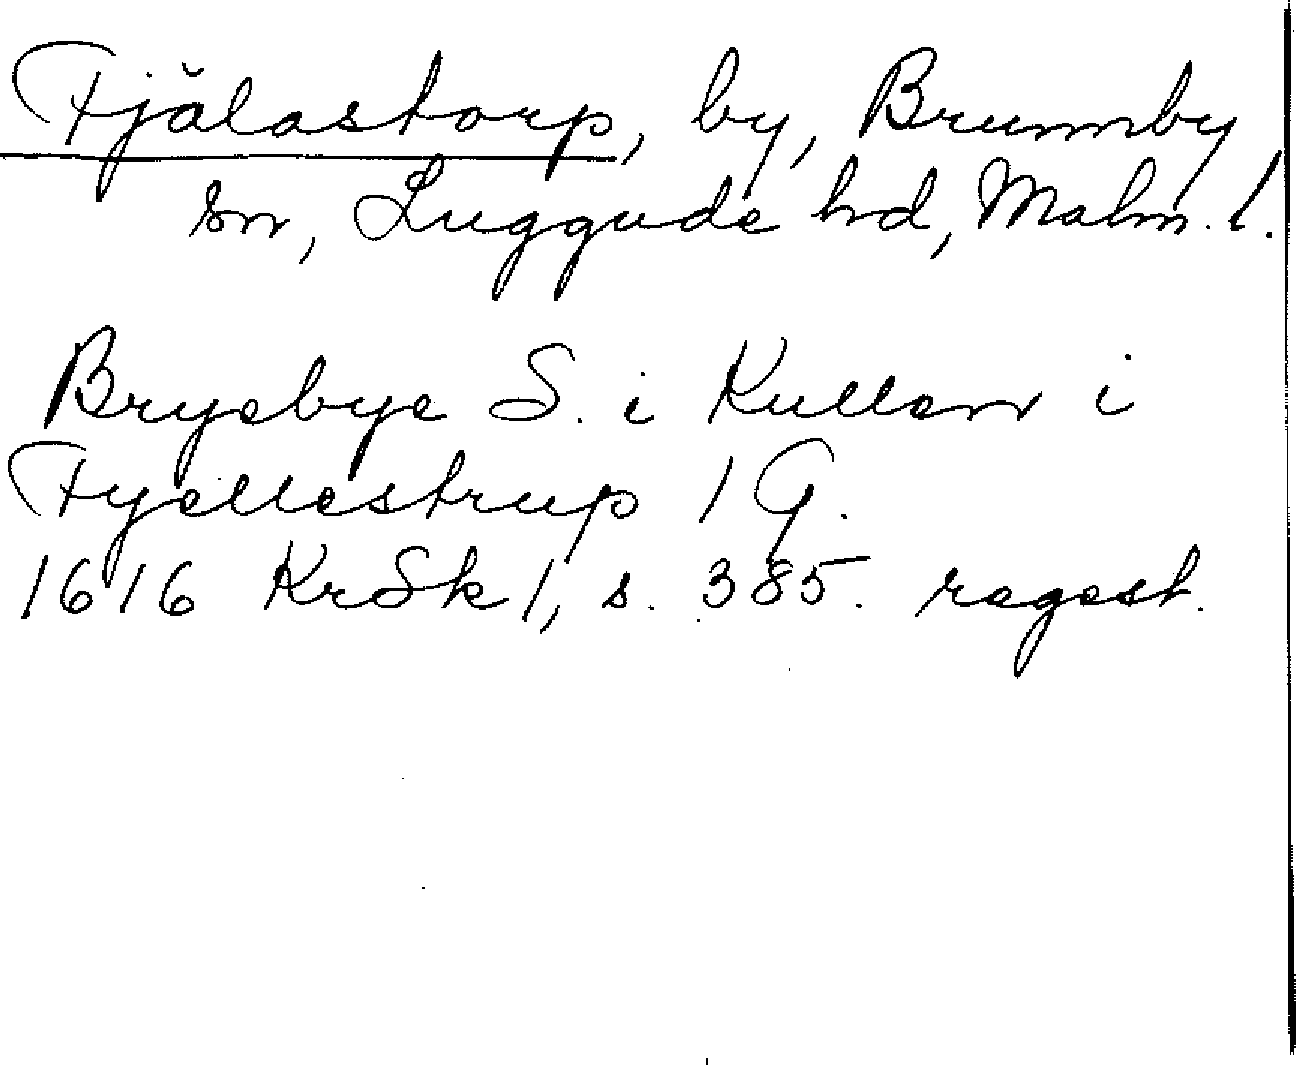 Fjälastorp, by, Brunnby
sn, Luggude hd, Malm. l.
Bryebye S. i Kullen i
Fyellestrup 1 G.
1616 KrSk 1, s. 385. regest.